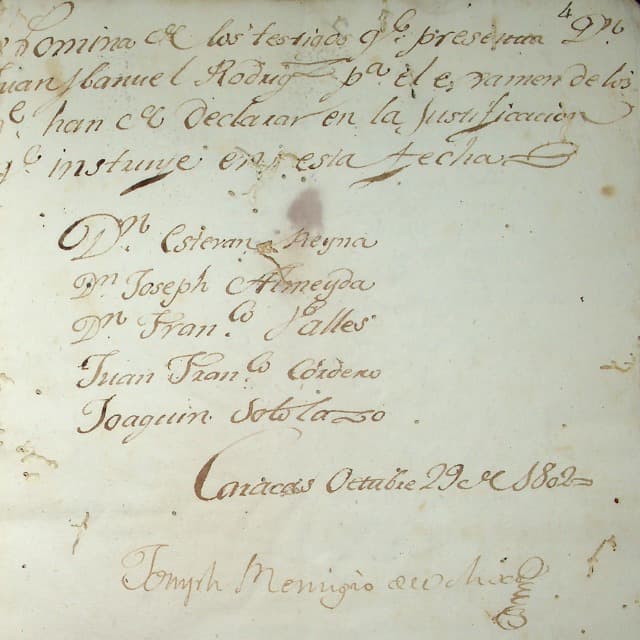 Nomina de los testigos qᵉ presenta Dⁿ
Juan Manuel Rodrigᶻ pᵃ el examen de los
qᵉ han de Declarar en la Justificacion
qᵉ instruye en esta fecha
Dⁿ Estevan Reyna
Dⁿ Joseph Almeyda
Dⁿ Franᶜᵒ Salles
Juan Franᶜᵒ Cordero
Joaquin Sotolazo
Caracas Octubre 29 de 1802=
Remigio